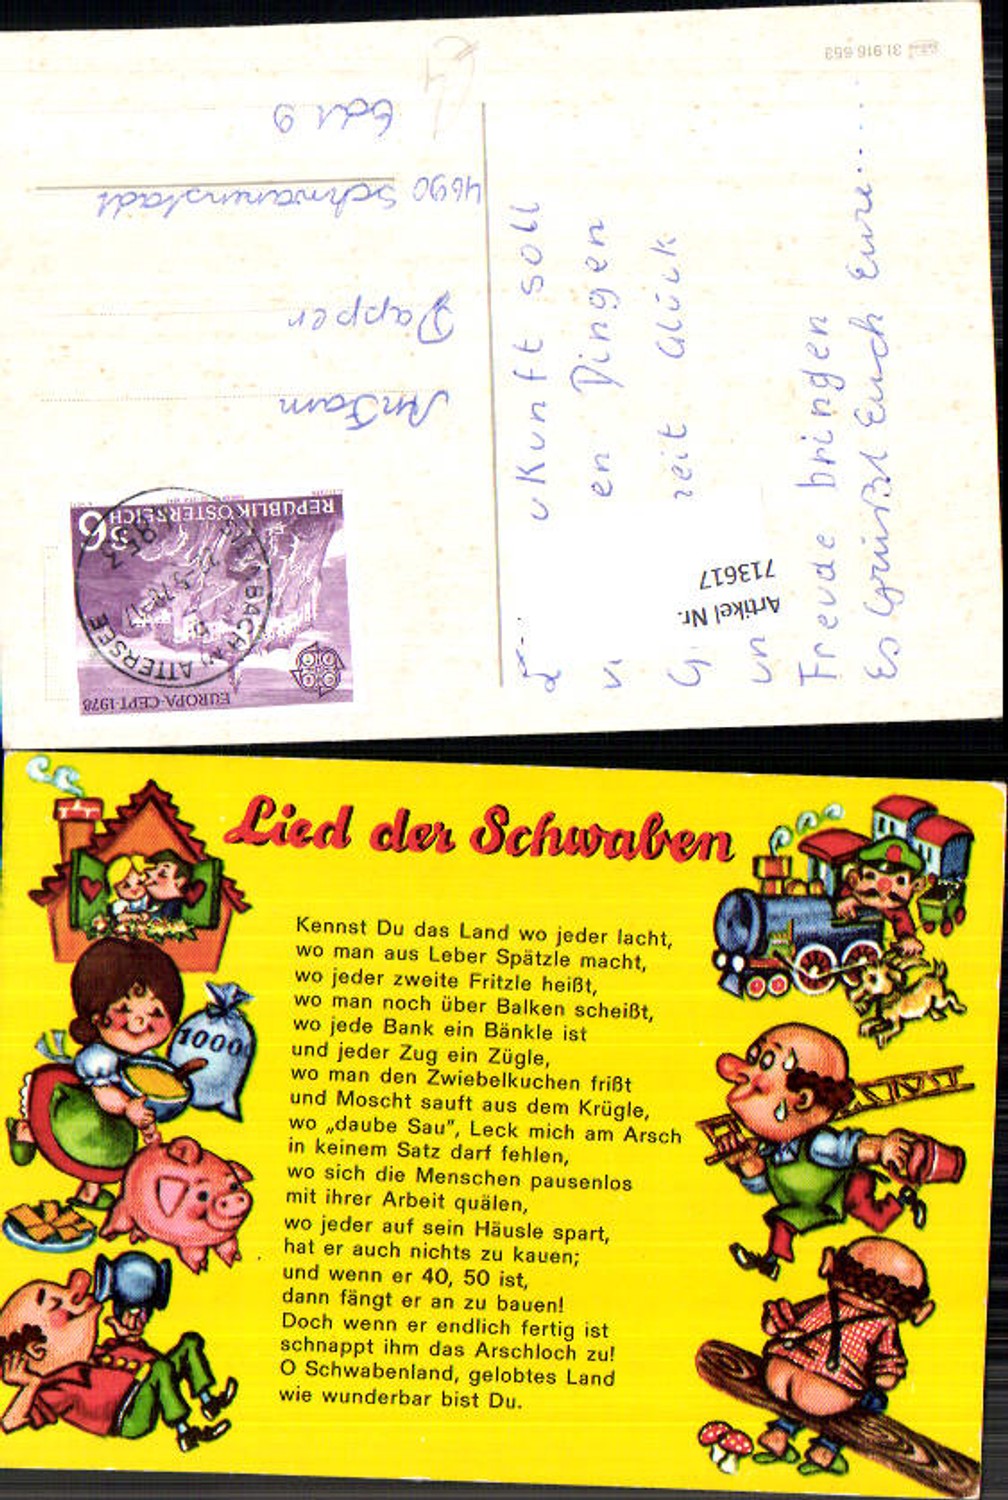 31.916 653
An Fam
Papper
4690 Schwanenstadt
Edt 9
REPUBLIK ÖSTERREICH
S6
EUROPA-CEPT-1978
ATTERSEE
Artikel Nr.
713617
ukunft soll
en Dingen
reit Glück
un
Freude bringen
Es Grüßt Euch Eure....
Lied der Schwaben
Kennst Du das Land wo jeder lacht,
wo man aus Leber Spätzle macht,
wo jeder zweite Fritzle heißt,
wo man noch über Balken scheißt,
wo jede Bank ein Bänkle ist
und jeder Zug ein Zügle,
wo man den Zwiebelkuchen frißt
und Moscht sauft aus dem Krügle,
wo „daube Sau", Leck mich am Arsch
in keinem Satz darf fehlen,
wo sich die Menschen pausenlos
mit ihrer Arbeit quälen,
wo jeder auf sein Häusle spart,
hat er auch nichts zu kauen;
und wenn er 40, 50 ist,
dann fängt er an zu bauen!
Doch wenn er endlich fertig ist
schnappt ihm das Arschloch zu!
O Schwabenland, gelobtes Land
wie wunderbar bist Du.
1000